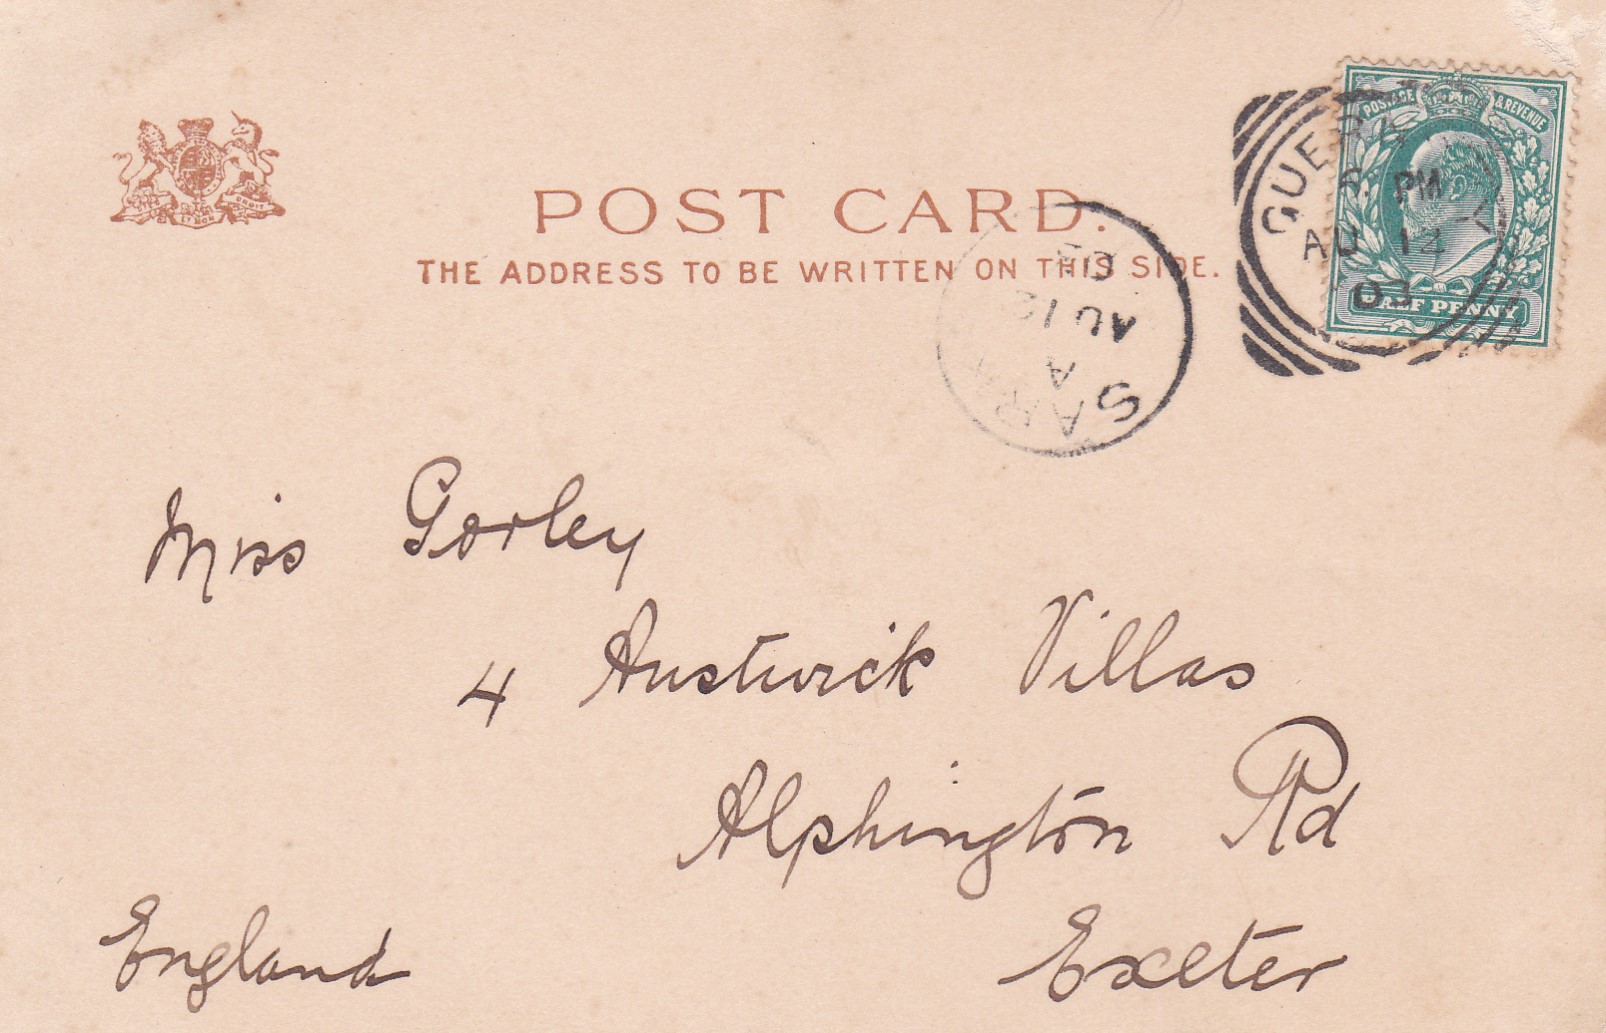 POST CARD.
THE ADDRESS TO BE WRITTEN ON THIS SIDE.
POSTAGE & REVENUE
HALF PENNY
PM
AU 14
03
SARK
A
AU 12
03
Miss Gorley
4 Austwick Villas
Alphington Rd
Exeter
England